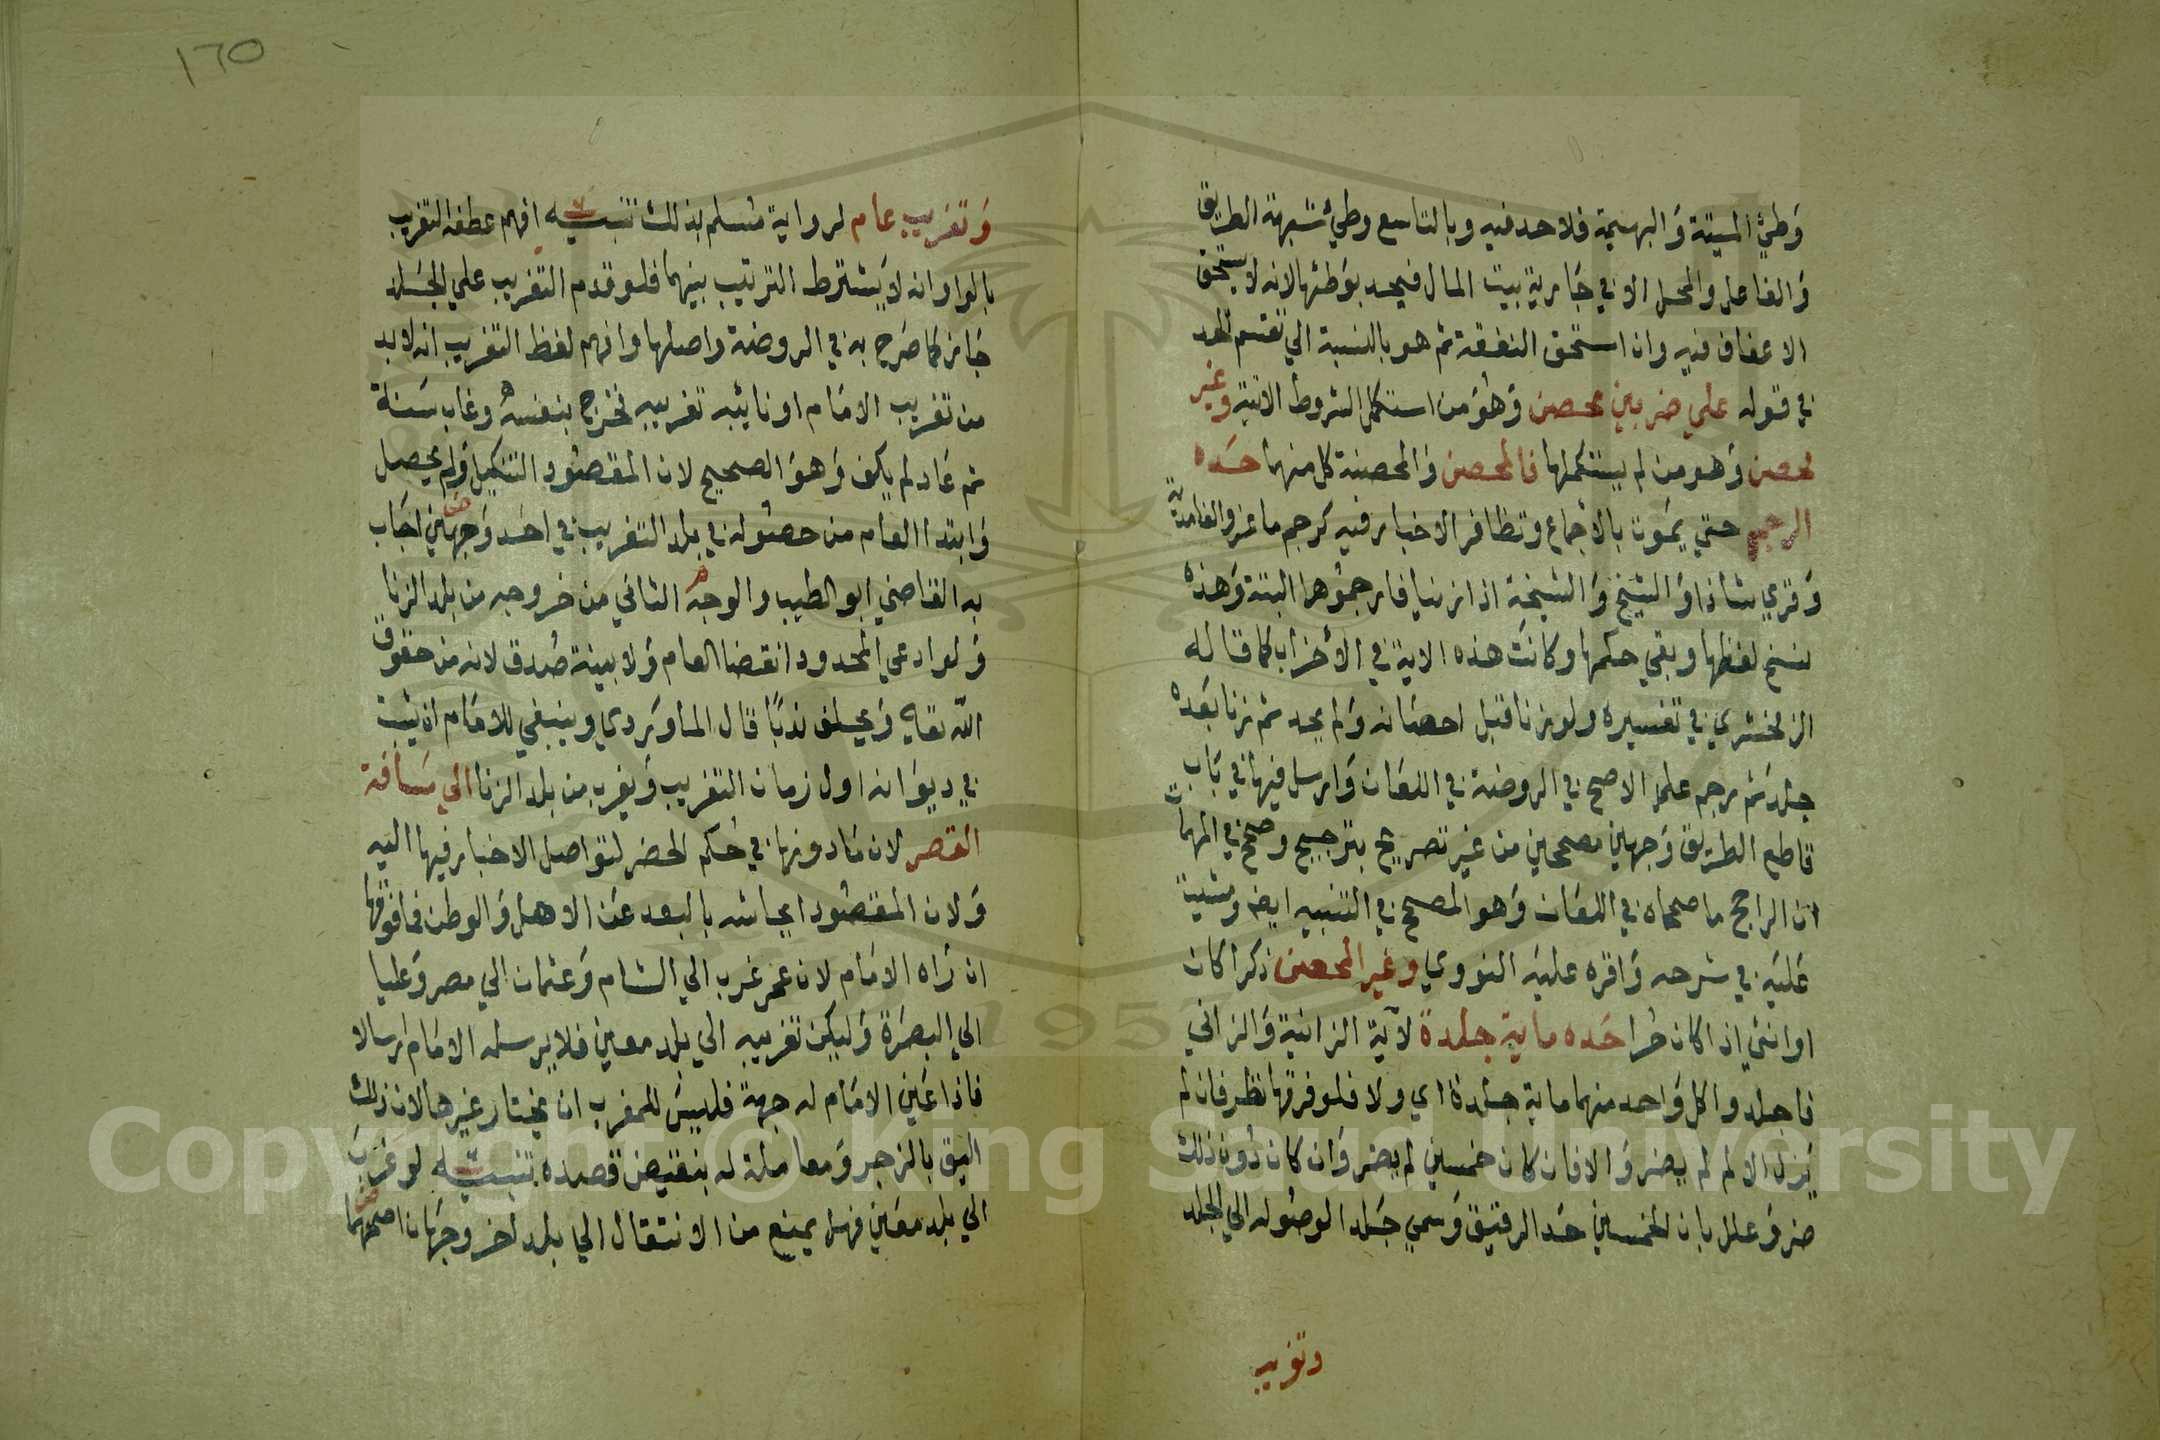 وطئ الميتة والبهيمة فلا حد فيه وبالتاسع وطئ شبهة الطريق
والفاعل والمحل الا في جارية بيت المال فيحد بوطئها لانه لا يستحق
الاعفاف فيه وان استحق النفقة ثم هو بالنسبة الي تقسيم الحد
في قوله علي ضربين محصن وهو من استكمل الشروط الاتية وغير
محصن وهو من لم يستكملها فالمحصن والمحصنة كل منهما حده
الرجم حتي يموت بالاجماع وتظافر الاخبار فيه كرجم ماعز والغامدية
وقري شاذا والشيخ والشيخة اذا زنيا فارجموهما البتة وهذه
نسخ لفظها وبقي حكمها وكانت هذه الاية في الاحزاب كما قاله
الزمخشري في تفسيره ولو زنا قبل احصانه ولم يحد ثم زنا بعده
جلد ثم رجم علي الاصح في الروضة في اللعان وارسل فيها في باب
قاطع الطريق وجهين مصححين من غير تصريح بترجيح وصحح في المهمات
ان الراجح ما صححاه في اللعان وهو المصحح في التنبيه ايضا ومشيت
عليه في شرحه واقره عليه النووي وغير المحصن ذكرا كان
او انثي اذا كان حرا حده ماية جلدة لآية الزانية والزاني
فاجلدوا كل واحد منهما ماية جلدة اي ولا فلو فرقها نظر فان لم
يزل الالم لم يضر والا فان كان خمسين لم يضر وان كان دون ذلك
ضر وعلل بان الخمسين حد الرقيق وسمي جلدا لوصوله الي الجلد
وتغريب
١٦٥
وتغريب عام لرواية مسلم بذلك تنبيه افهم عطفه التغريب
بالواو انه لا يشترط الترتيب بينهما فلو قدم التغريب علي الجلد
جاز كما صرح به في الروضة واصلها وافهم لفظ التغريب انه لا بد
من تغريب الامام او نائبه تغريبه فخرج بنفسه وغاب سنة
ثم عاد لم يكف وهو الصحيح لان المقصود التنكيل ولم يحصل
وابتدا العام من حصوله في بلد التغريب في احد وجهين اجاب
به القاضي ابو الطيب والوجه الثاني من خروجه من بلد الزنا
ولو ادعي المحدود انقضا العام ولا بينة صدق لانه من حقوق
الله تعالي ويحلف ندبا قال الماوردي وينبغي للامام ان يثبت
في ديوانه اول زمان التغريب ويغرب من بلد الزنا الي مسافة
القصر لان مادونها في حكم الحضر لتواصل الاخبار فيها اليه
ولان المقصود ايحاشه بالبعد عن الاهل والوطن فما فوقها
ان راه الامام لان عمر غرب الي الشام وعثمان الي مصر وعليا
الي البصرة وليكن تغريبه الي بلد معين فلا يرسله الامام ارسالا
فاذا عين الامام له جهة فليس للمغرب ان يختار غيرها لان ذلك
اليق بالزجر ومعاملة له بنقيض قصده تنبيه لو غرب
الي بلد معين فهل يمنع من الانتقال الي بلد اخر وجهان اصحهما
Copyright © King Saud University
1957